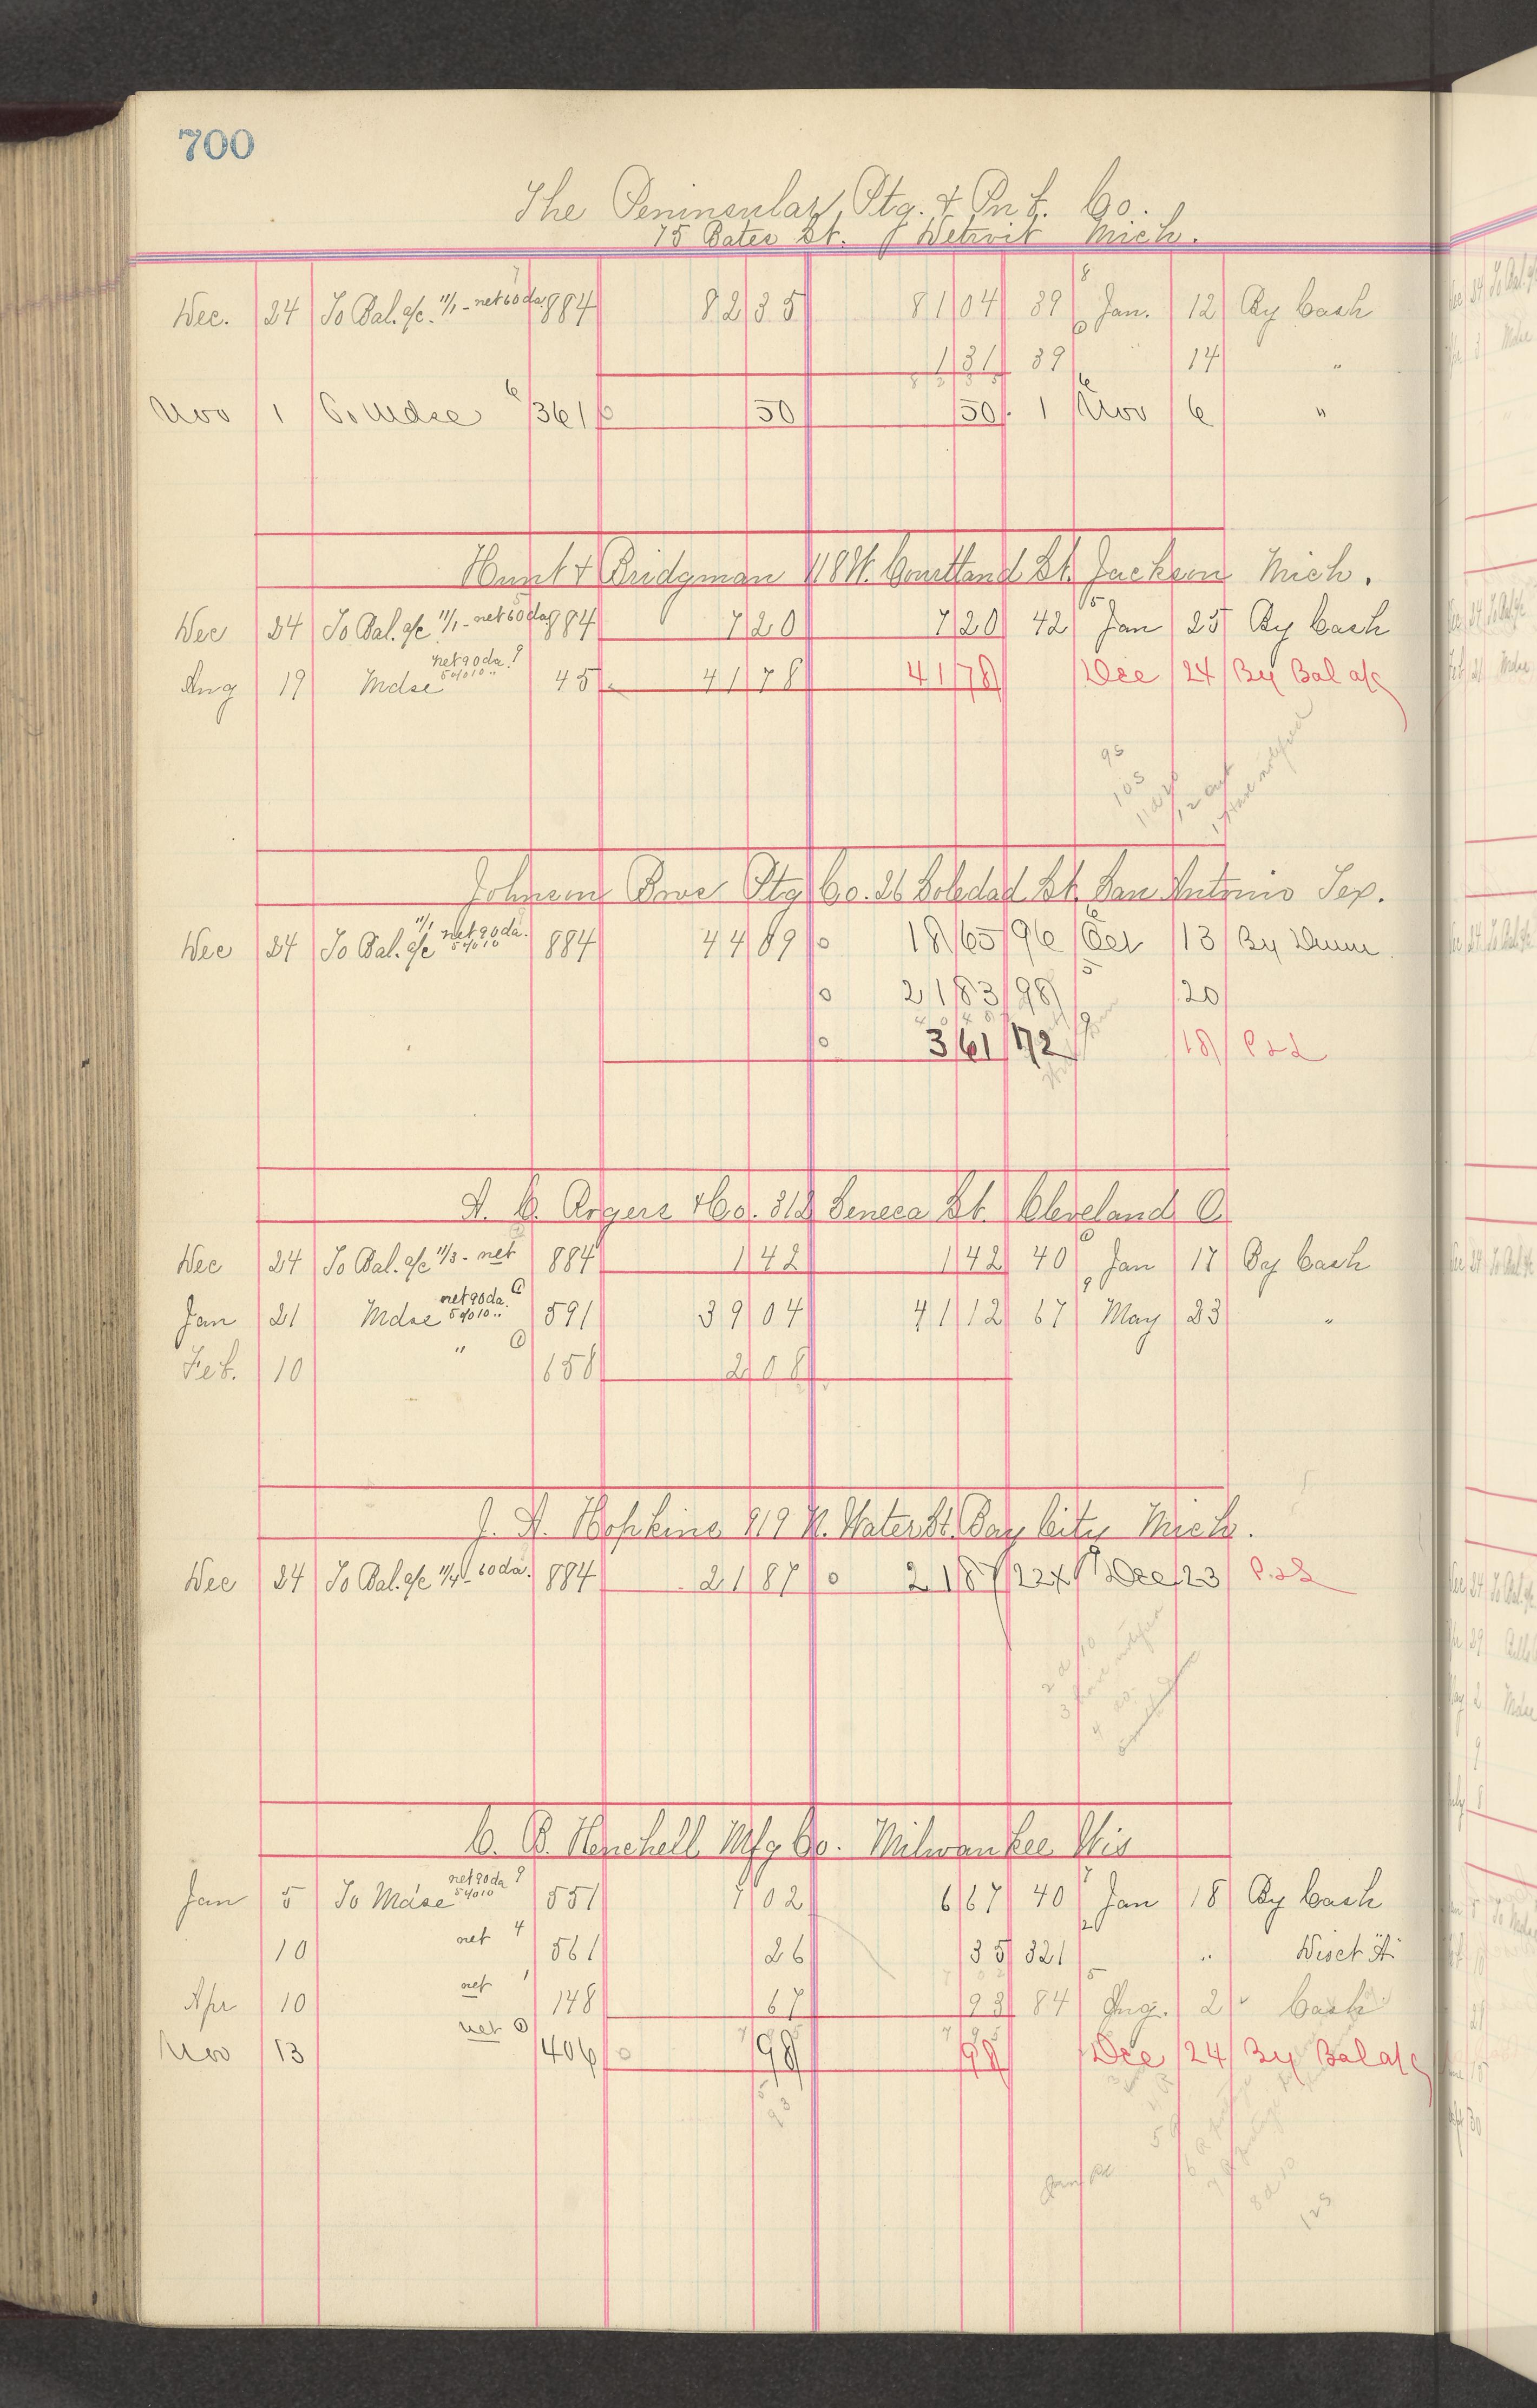 700
The Peninsular Ptg. & Pub. Co.
75 Bates St. Detroit Mich.
Dec. 24 To Bal. a/c. 11/1 - net 60 da. 884 82 35 81 04 39 Jan. 12 By Cash
1 31 39 14 "
Nov 1 To Mdse 361 50 50 1 Nov 6 "
Hunt & Bridgman Courtland St. Jackson Mich.
Dec 24 To Bal. a/c 11/1 - net 60 da 884 7 20 7 20 42 Jan 25 By Cash
Aug 19 Mdse net 90 da. 5% 10 " 45 41 78 41 78 Dec 24 By Bal a/c
95
103
Johnson Bros Ptg Co. 26 Soledad St. San Antonio Tex.
Dec 24 To Bal. a/c 11/1 net 90 da. 5% 10 884 44 89 18 65 96 Oct 13 By
21 83 98 20
3 61 72 18 P & L
& Co. 312 Seneca St. Cleveland O
Dec 24 To Bal. a/c 11/3 - net 884 1 42 1 42 40 Jan 17 By Cash
Jan 21 Mdse net 90 da. 5% 10 " 591 39 04 41 12 67 May 23 "
Feb. 10 " 658 2 08
J. H. Hopkins 919 N. Water St. Bay City Mich.
Dec 24 To Bal. a/c 11/4 - 60 da. 884 21 87 21 87 224 Dec 23 P. & L
C. B. Henchell Mfg Co. Milwaukee Wis
Jan 5 To Mdse net 90 da 5% 10 551 7 02 6 67 40 Jan 18 By Cash
10 net 561 26 35 321 " Disct
Apr 10 net 148 67 93 84 Aug. 2 " Cash
Nov 13 net 406 98 98 Dec 24 By Bal a/c
123